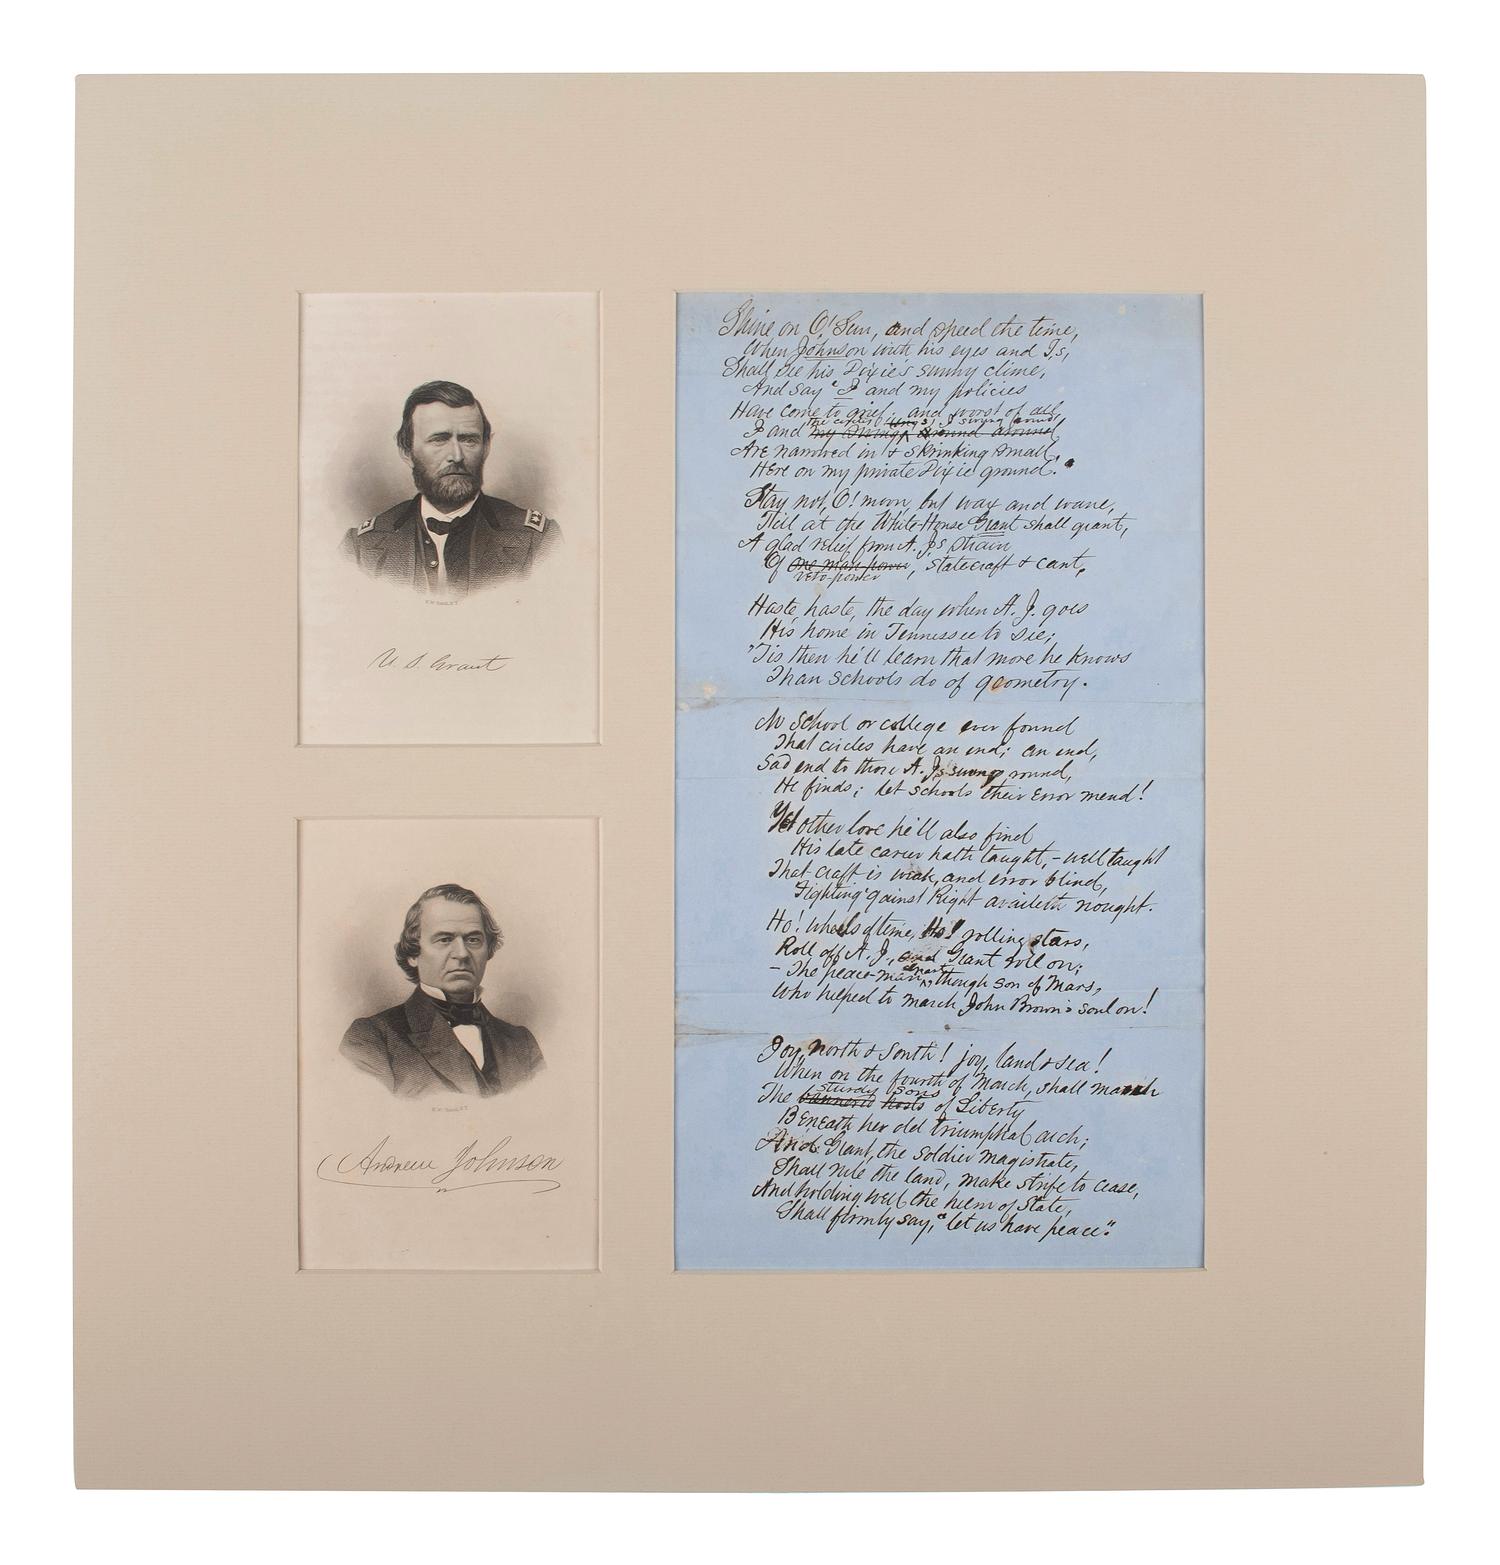 U. S. Grant
Andrew Johnson
Shine on O! Sun, and speed the time,
When Johnson with his eyes and I,s,
Shall see his Dixie's sunny clime,
And say "I and my policies
Have come to grief, and worst of all,
the circles (wings) I swung round
I and my swings around around
Are narrowed in & shrinking small,
Here on my private Dixie ground."
Stay not, O! moon, but wax and wane,
Till at the White-House Grant shall grant,
A glad relief from A. J,s strain
Of one man power, statecraft & cant,
veto-power
Haste haste, the day when A. J. goes
His home in Tennessee to see;
'Tis then he'll learn that more he knows
Than schools do of geometry.
No School or college ever found
That circles have an end; an end,
Sad end to those A. J,s swung round,
He finds; let schools their error mend!
Yet other lore he'll also find
His late career hath taught,- well taught
That craft is weak, and error blind,
Fighting 'gainst Right availeth nought.
Ho! wheels of time, Ho! rolling stars,
Roll off A. J., and Grant roll on;
- The peace-man, though son of Mars,
Who helped to march John Brown's soul on!
Joy, north & South! joy, land & sea!
When on the fourth of March, shall march
sturdy sons
The bannered hosts of Liberty
Beneath her old triumphal arch;
And Grant, the soldier magistrate,
Shall rule the land, make strife to cease,
And holding well the helm of State,
Shall firmly say, "let us have peace".